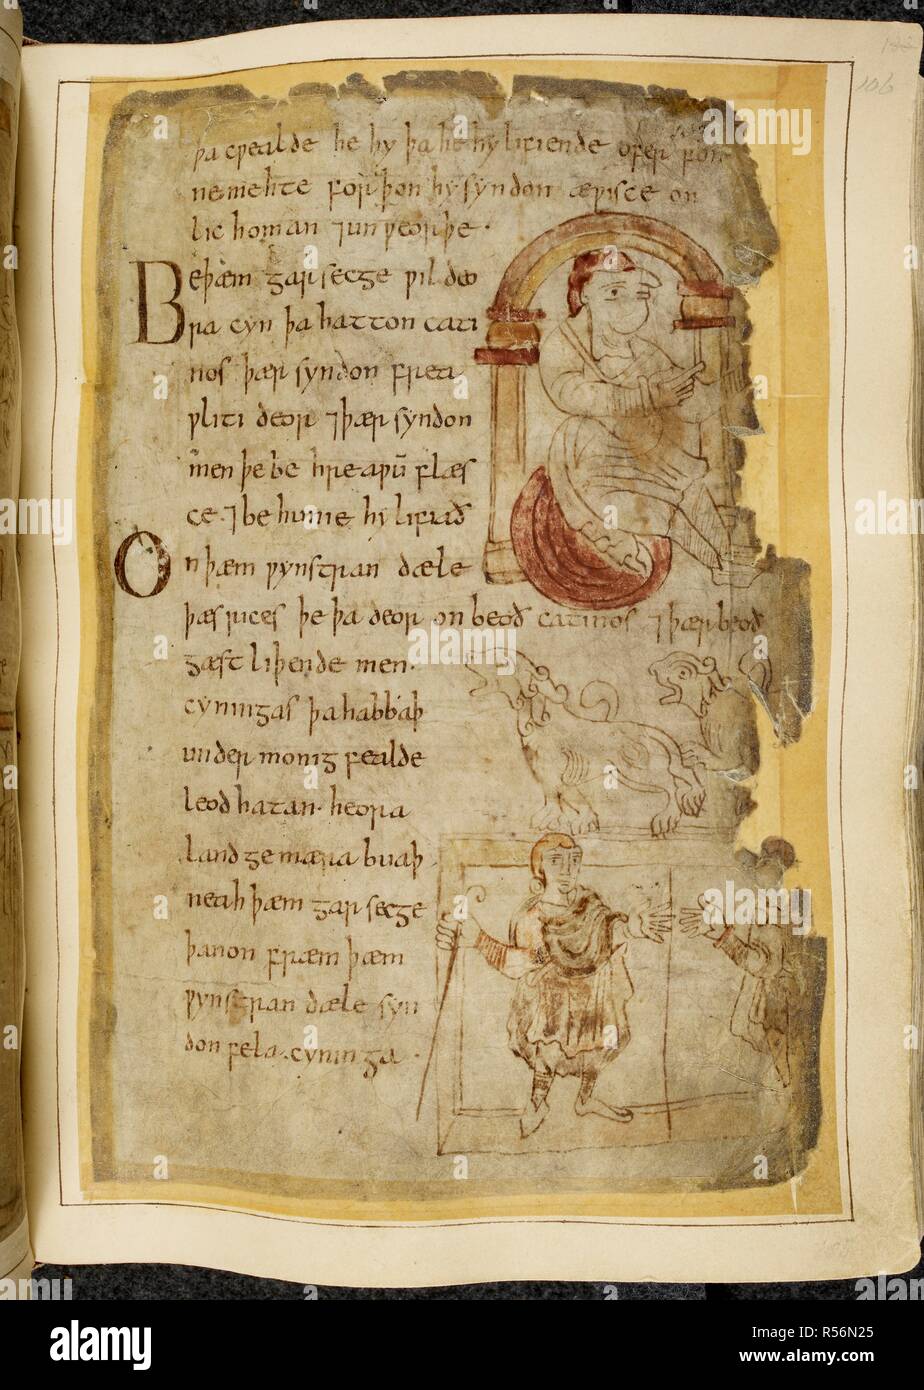 þa cƿealde he hy þa he hy lifiende ofer fon
ne mehte forþon hy syndon æƿisce on
lic homan ⁊ unƿeorþe·
Be þæm garsecge ƿildeo
ra cyn þa hatton cati
nos þær syndon freaƿ
ƿliti deor ⁊ þær syndon
men þe be hreaƿū flæs
ce ⁊ be hunie hy lifiað
On þæm ƿynstran dæle
þæs rices þe þa deor on beoð catinos ⁊ þær beoð
gæst liþende men·
cyningas þa habbaþ
under monigfealde
leodhatan· heora
landgemæra buaþ
neah þæm garsecge
þanon fræm þæm
ƿynstran dæle syn
don fela· cyninga·
106
alamy
www.alamy.com
Image ID: R56N25